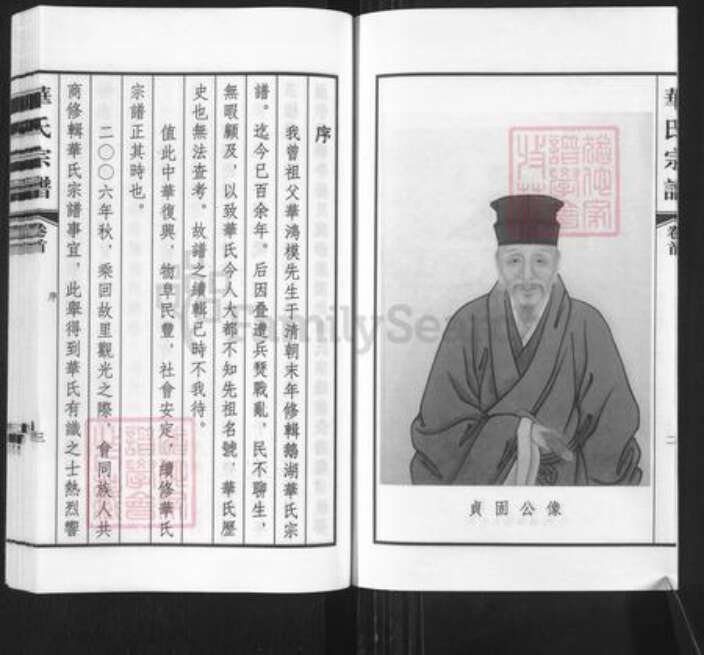 華氏宗譜
卷首
二
貞固公像
序
我曾祖父華鴻模先生于清朝末年修輯鵝湖華氏宗
譜。迄今已百余年。后因叠遭兵燹戰亂，民不聊生，
無暇顧及，以致華氏今人大都不知先祖名號，華氏歷
史也無法查考。故譜之續輯已時不我待。
值此中華復興，物阜民豐，社會安定，續修華氏
宗譜正其時也。
二〇〇六年秋，乘回故里觀光之際，會同族人共
商修輯華氏宗譜事宜，此舉得到華氏有識之士熱烈響
華氏宗譜
卷首
序
三
FamilySearch